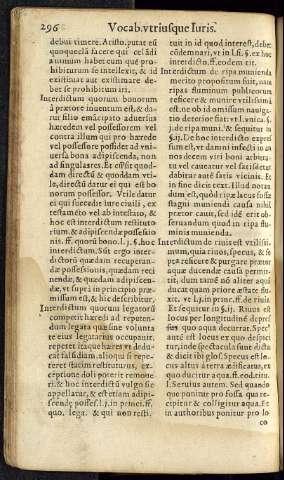 296 Vocab. vtriusque Iuris.
debui timere. Aristo. putat eũ
quoque
annuim habet cum quę pro-
hibiturum se intellexit, & id
existimat aut existimare de-
bet se prohibitum iri.
Interdictum quorum bonorum
à prætore inuentum est, & da-
tur filio emãcipato aduersus
hæredem vel possessorem vel
contra illum qui pro hærede
vel possessore possidet ad vni-
uersa bona adipiscenda, non
ad singulares. Et
dam directũ & quoddam vti-
le, directũ datur ei qui est bo-
norum possessor. Vtile datur
ei qui succedit iure ciuili, ex
testamẽto vel ab intestato, &
hoc est interdictum restituto
rium, & adipiscendæ possessio
nis. ff. quorũ bono. l. j. §. hoc
interdictum. Sũt ergo inter-
dictorũ quædam recuperan-
dæ possessionis, quædam reti
nendæ, & quædam adipiscen-
dæ, vt supra in principio præ-
missum est, & hic describitur.
Interdictum quorum legatorũ
competit hæredi ad repeten-
dum legata quæ sine volunta
te eius legatarius occupauit,
repetet itaque hæres vt dedu-
cat falsidiam. alioqui si repe-
teret tãtum restituturus, ex-
ceptione doli poterit remoue
ri. & hoc interdictũ vulgo sic
appellatur, & est etiam adipi-
scendę possess. l. j. in princi. ff.
quo. lega. & qui non resti-
tuit in id quod interest, debet
cõdemnari, vt in l. si §. ex hoc
interdicto. ff. eodem tit.
Interdictum de ripa munienda
merito propositum fuit, nam
ripas fluminum publicorum
reficere & munire vtilissimũ
est: ne ob id nomissam nauiga-
tio deterior fiat: vt l. vnica. §.
j. de ripa muni. & sequitur in
§. ij. De hoc interdicto exprẽ
sum est, vt damni infecti in an
nos decem viri boni arbitra-
tu vel caueatur vel satisdetur
dabitur autẽ satis vicinis. Et
in fine dicit text. Illud notan
dum est, quod ripæ locus fossæ
stagni muniendi causa nihil
prætor cauit, sed idẽ erit ob-
seruandum quod in ripa flu-
minis munienda.
Interdictum de riuis est vtilissi-
mum, quia riuos, specus, & se
pta reficere & purgare præter
aquæ ducendæ causa permit-
tit, dum tamẽ nõ aliter aquã
ducat quam priore æstate fe-
xit. vt l. j. in princ. ff. de riuis
Et sequitur in §. ij. Riuus est
locus per longitudinẽ depref
sus quo aqua decurrat. Speci
autẽ est locus ex quo despici
tur, inde spectacula sunt dicta
& dicit ibi glos. Specus est lo-
cus altus à terræ ædificatus, ex
quo ducitur aqua. ff. eod. tit.
l. Seruius autem. Sed quando
que ponitur pro fossa qua re-
cipitur & colligitur aqua. Et
in authoribus ponitur pro lo
co